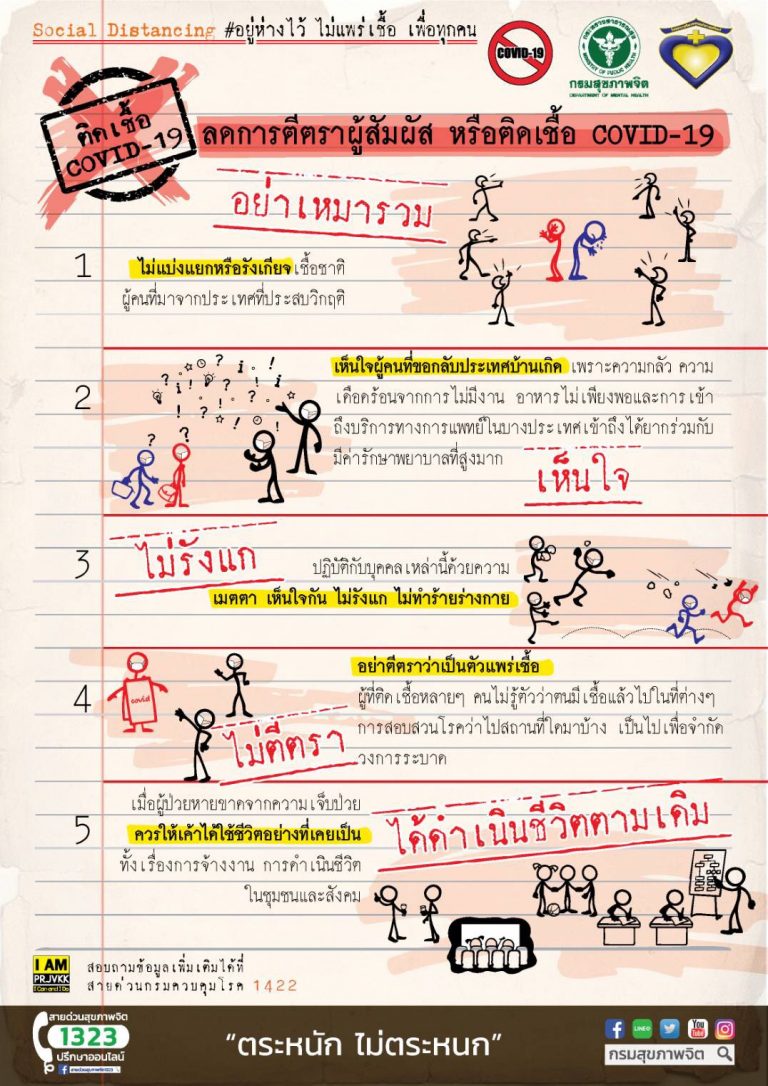 Social Distancing #อยู่ห่างไว้ ไม่แพร่เชื้อ เพื่อทุกคน
COVID-19
กระทรวงสาธารณสุข
MINISTRY OF PUBLIC HEALTH
กรมสุขภาพจิต
DEPARTMENT OF MENTAL HEALTH
ติดเชื้อ
COVID-19
ลดการตีตราผู้สัมผัส หรือติดเชื้อ COVID-19
อย่าเหมารวม
1
ไม่แบ่งแยกหรือรังเกียจเชื้อชาติ
ผู้คนที่มาจากประเทศที่ประสบวิกฤติ
2
เห็นใจผู้คนที่ขอกลับประเทศบ้านเกิด เพราะความกลัว ความ
เดือดร้อนจากการไม่มีงาน อาหารไม่เพียงพอและการเข้า
ถึงบริการทางการแพทย์ในบางประเทศเข้าถึงได้ยากร่วมกับ
มีค่ารักษาพยาบาลที่สูงมาก
เห็นใจ
3
ไม่รังแก
ปฏิบัติกับบุคคลเหล่านี้ด้วยความ
เมตตา เห็นใจกัน ไม่รังแก ไม่ทำร้ายร่างกาย
4
covid
ไม่ตีตรา
อย่าตีตราว่าเป็นตัวแพร่เชื้อ
ผู้ที่ติดเชื้อหลายๆ คนไม่รู้ตัวว่าตนมีเชื้อแล้วไปในที่ต่างๆ
การสอบสวนโรคว่าไปสถานที่ใดมาบ้าง เป็นไปเพื่อจำกัด
วงการระบาด
5
เมื่อผู้ป่วยหายขาดจากความเจ็บป่วย
ควรให้เค้าได้ใช้ชีวิตอย่างที่เคยเป็น
ทั้งเรื่องการจ้างงาน การดำเนินชีวิต
ในชุมชนและสังคม
ได้ดำเนินชีวิตตามเดิม
I AM
PRJVKK
I Can and I Do
สอบถามข้อมูลเพิ่มเติมได้ที่
สายด่วนกรมควบคุมโรค 1422
สายด่วนสุขภาพจิต
1323
ปรึกษาออนไลน์
สายด่วนสุขภาพจิต1323
“ตระหนัก ไม่ตระหนก”
LINE
You Tube
กรมสุขภาพจิต